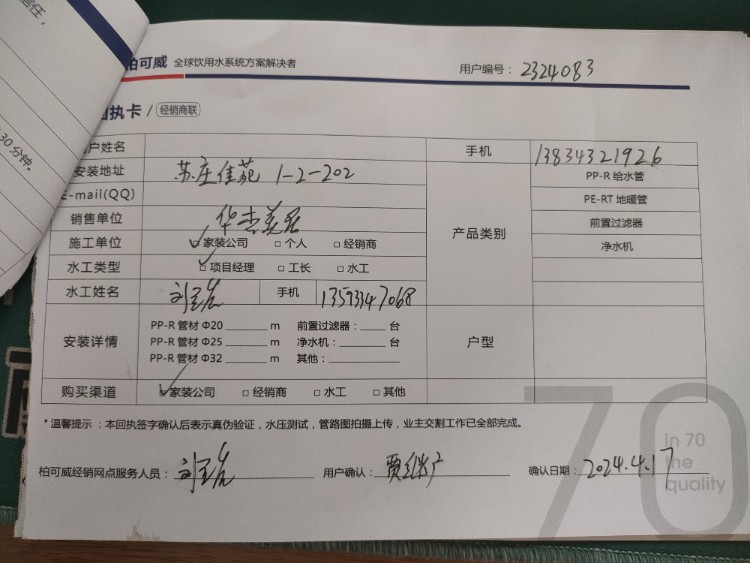 信任,
30分钟。
柏可威 全球饮用水系统方案解决者 用户编号：2324083
回执卡 / 经销商联
户姓名 手机 13834321926
安装地址 苏庄佳苑 1-2-202 产品类别 PP-R 给水管
E-mail(QQ) PE-RT 地暖管
销售单位 前置过滤器
施工单位 家装公司 个人 经销商 净水机
水工类型 项目经理 工长 水工
水工姓名 手机 13593347068
安装详情 PP-R 管材 Φ20 ______ m 前置过滤器：____ 台 户型
PP-R 管材 Φ25 ______ m 净水机：____ 台
PP-R 管材 Φ32 ______ m 其他：________
购买渠道 家装公司 经销商 水工 其他
* 温馨提示：本回执签字确认后表示真伪验证，水压测试，管路图拍摄上传，业主交割工作已全部完成。
柏可威经销网点服务人员： 用户确认： 确认日期：2024.4.17
70
In 70
the
quality